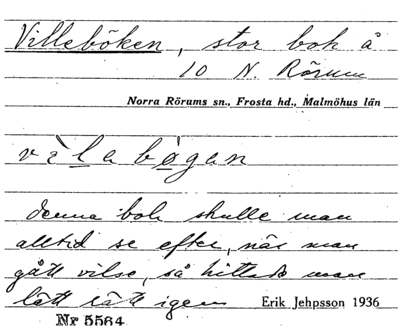 Villeböken, stor bok å
10 N. Rörum
Norra Rörums sn., Frosta hd., Malmöhus län
vìlabøgan
denna bok skulle man
alltid se efter, när man
gått vilse, så hittade man
lätt rätt igen
Erik Jehpsson 1936
Nr 5564